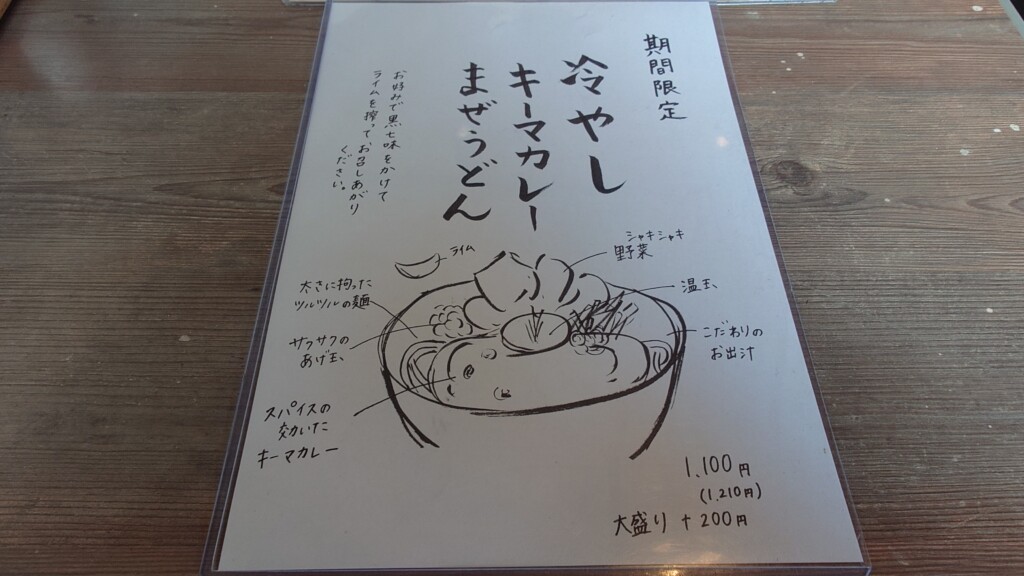 期間限定
冷やし
キーマカレー
まぜうどん
お好みで黒七味をかけて
ライムを搾ってお召しあがり
ください。
ライム
シャキシャキ
野菜
温玉
こだわりの
お出汁
太さに拘った
ツルツルの麺
サクサクの
あげ玉
スパイスの
効いた
キーマカレー
1,100円
(1,210円)
大盛り +200円